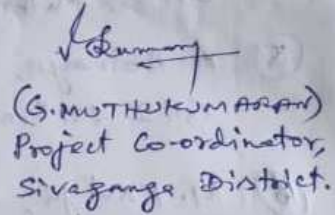 (G. MUTHUKUMARAN)
Project Co-ordinator,
Sivaganga District.